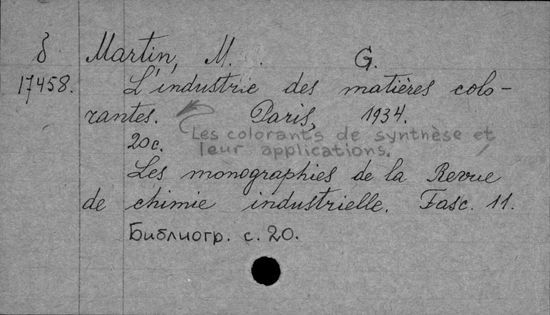 δ Martin, M. G.
17458. L'industrie des matières colo-
rantes. Paris, 1934.
Les colorants de synthèse et
leur applications.
20c.
Les monographies de la Revue
de chimie industrielle. Fasc. 11.
Библиогр. с. 20.